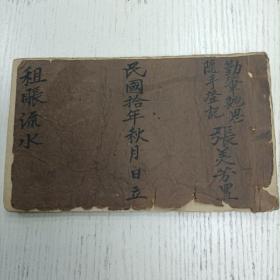 勤筆勉思
隨手登記
張美芳置
民國拾年秋月日立
租賬流水